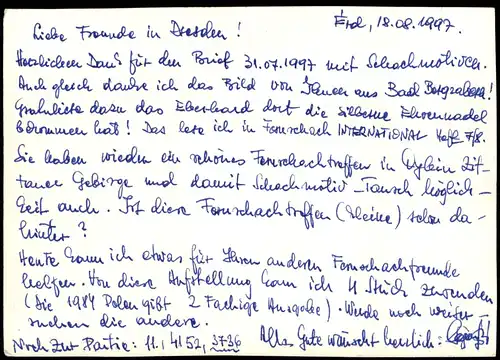 Érd, 18.08.1997.
Liebe Freunde in Dresden!
Herzlichen Dank für den Brief 31.07.1997 mit Schachmotiven.
Auch gleich danke ich das Bild von Ihnen aus Bad Bergzabern!
Gratuliere dazu das Eberhard dort die silberne Ehrennadel
bekommen hat! Das lese ich in Fernschach INTERNATIONAL Heft 7/8.
Sie haben wieder ein schönes Fernschachtreffen in Oybin Zit-
tauer Gebirge und damit Schachmotiv-Tausch möglich-
keit auch. Ist diese Fernschachtreffen (kleine) schon da-
hinter?
Heute kann ich etwas für Ihren anderen Fernschachfreunde
helfen. Von diese Aufstellung kann ich 4 Stück zusenden
(Die 1984 Polen gibt 2 Fachige Ausgabe). Werde noch weiter
suchen die andere.
Alles Gute wünscht herzlich:
Noch zur Partie: 11./4152, 3736